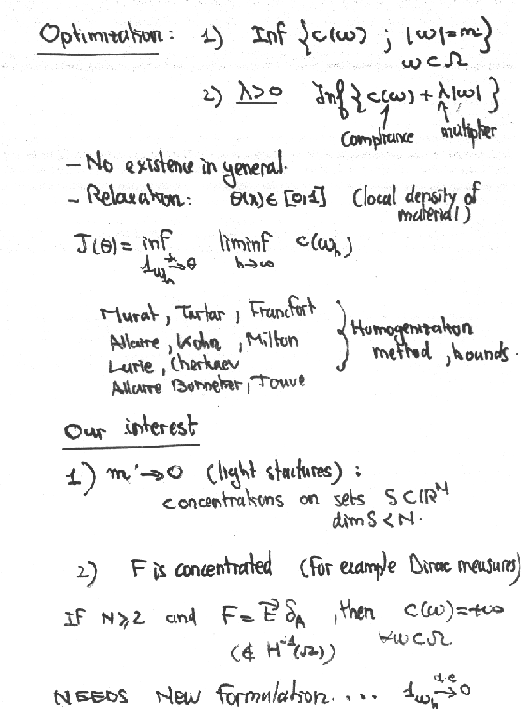 Optimization: 1) Inf {c(ω) ; |ω|=m}
ω⊂Ω
2) λ>0 Inf {c(ω) + λ|ω|}
compliance multiplier
- No existence in general.
- Relaxation: θ(x) ∈ [0,1] (local density of
material)
J(θ) = inf liminf c(ω_h)
1_{ω_h} *⇀ θ h→∞
Murat, Tartar, Francfort
Allaire, Kohn, Milton
Lurie, Cherkaev
Homogenization
method, bounds.
Allaire Bonnetier, Jouve
Our interest
1) m→0 (light structures):
concentrations on sets S⊂ℝ^N
dim S < N.
2) F is concentrated (for example Dirac measures)
If N≥2 and F = P⃗ δ_A, then c(ω)=+∞
(∉ H^{-1}(Ω)) ∀ω⊂Ω
NEEDS New formulation.... 1_{ω_h} →^{a.e} 0